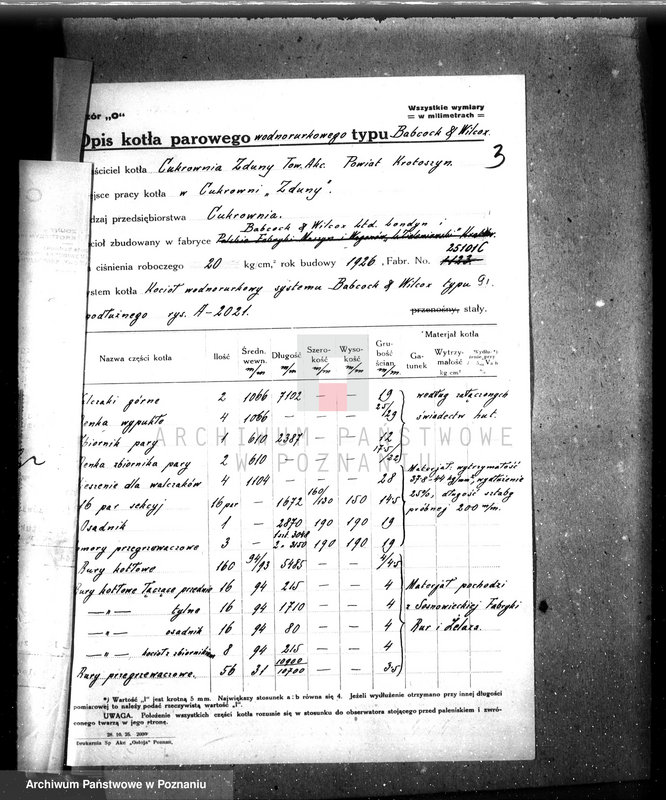 zór „O"
Wszystkie wymiary
= w milimetrach =
Opis kotła parowego wodnorurkowego typu Babcoch & Wilcox.
3
ściciel kotła Cukrownia Zduny Tow. Akc. Powiat Krotoszyn.
ejsce pracy kotła w Cukrowni „Zduny".
dzaj przedsiębiorstwa Cukrownia.
Babcoch & Wilcox Ltd. Londyn i
cioł zbudowany w fabryce Polskie Fabryki Maszyn i Wagonów,
25101C
a ciśnienia roboczego 20 kg cm,² rok budowy 1926, Fabr. No. 1123.
ystem kotła Kocioł wodnorurkowy systemu Babcock & Wilcox typu
podłużnego rys. A-2021. przenośny, stały.
Nazwa części kotła Ilość Średn. wewn. m/m Długość m/m Szerokość m/m Wysokość m/m Grubość ścian m/m
*Materjał kotła
Gatunek Wytrzymałość kg cm²
górne 2 1066 7102 — — 19 według załączonych
Denka wypukłe 4 1066 — — — 25/29 świadectw hut.
Zbiornik pary 1 610 2387 — — 12
Denka zbiornika pary 2 610 — — —
dla walczaków 4 1104 — — — 28 Materjał, wytrzymałość
16 par sekcyj 16 par — 1672 160/130 150 14,5 25%, długość sztaby
Osadnik 1 — 2870 190 190 19 próbnej 200 m/m.
omory przegrzewaczowe 3 — 190 190 19
Rury kotłowe 160 94/93 5485 — — 4/4,5
Rury kotłowe łączące przednie 16 94 215 — — 4 Materjał pochodzi
— „ — tylne 16 94 1710 — — 4 z Sosnowieckiej Fabryki
— „ — osadnik 16 94 80 — — 4 Rur i Żelaza.
— „ — kocioł z zbiornikiem 8 94 215 — — 4
Rury przegrzewaczowe. 56 31 10900/10700 — — 3,5
*) Wartość „l" jest krotną 5 mm. Największy stosunek a : b równa się 4. Jeżeli wydłużenie otrzymano przy innej długości
pomiarowej to należy podać rzeczywistą wartość „l".
UWAGA. Położenie wszystkich części kotła rozumie się w stosunku do obserwatora stojącego przed paleniskiem i zwró-
conego twarzą w jego stronę.
28. 10. 25. 2000
Drukarnia Sp Akc „Ostoja" Poznań,
ARCHIWUM PAŃSTWOWE
W POZNANIU
Archiwum Państwowe w Poznaniu